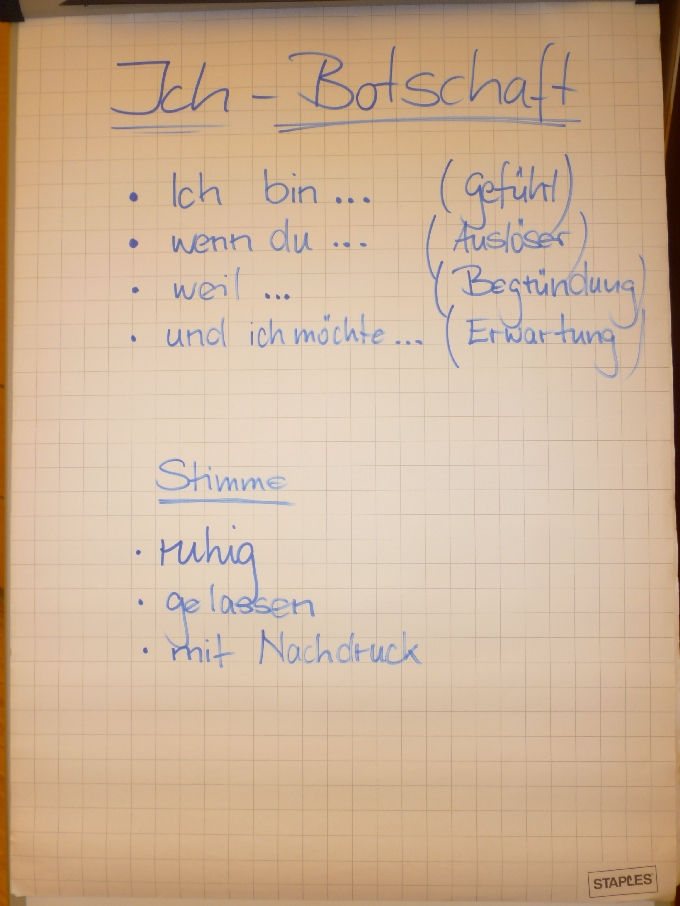 Ich - Botschaft
• Ich bin ... (Gefühl)
• wenn du ... (Auslöser)
• weil ... (Begründung)
• und ich möchte ... (Erwartung)
Stimme
• ruhig
• gelassen
• mit Nachdruck
STAPLES